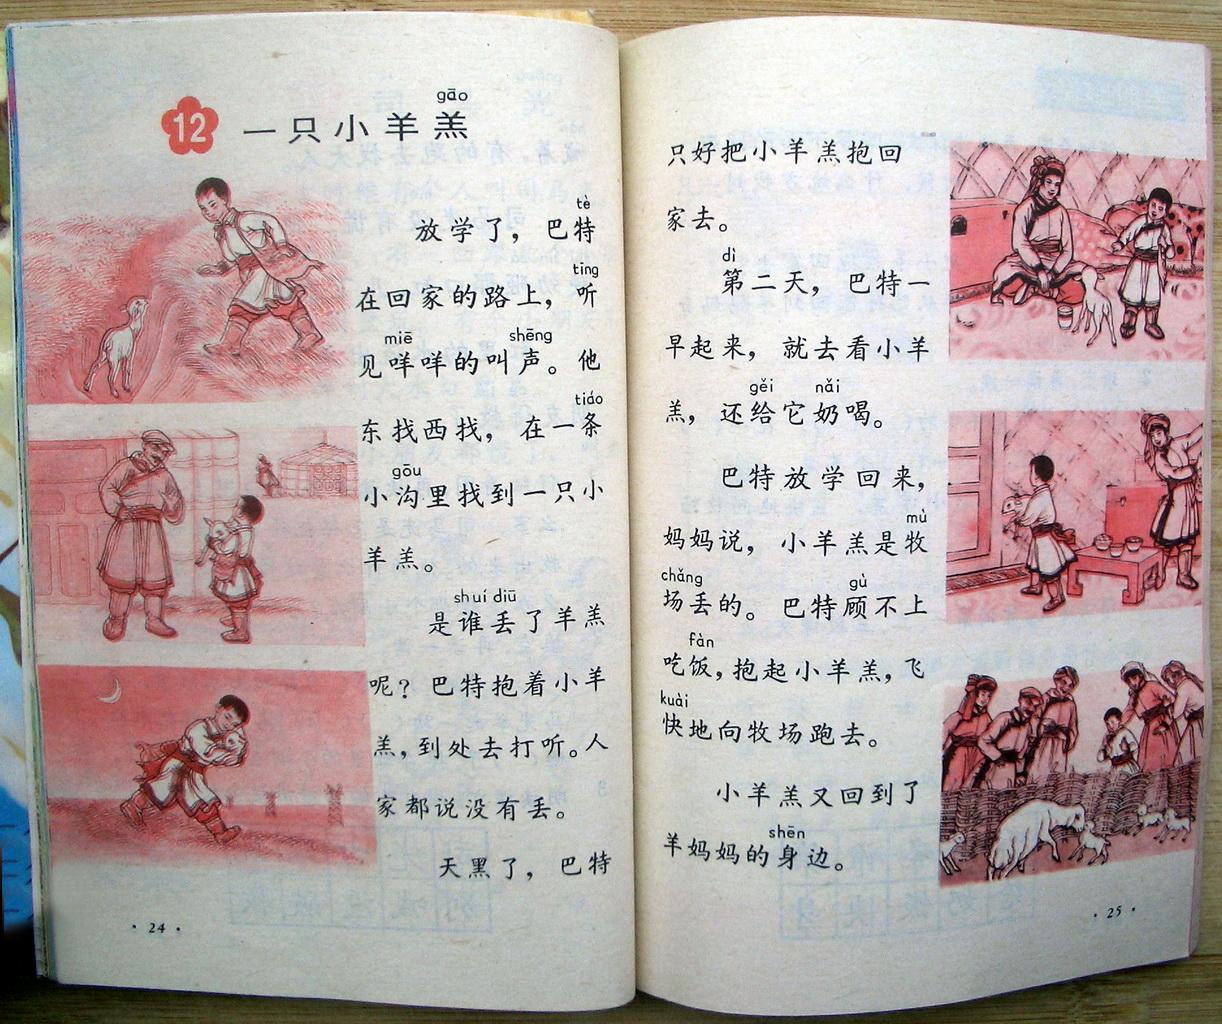 12
gāo
一只小羊羔
tè
放学了，巴特
tīng
在回家的路上，听
miē shēng
见咩咩的叫声。他
tiáo
东找西找，在一条
gōu
小沟里找到一只小
羊羔。
shuí diū
是谁丢了羊羔
呢？巴特抱着小羊
羔，到处去打听。人
家都说没有丢。
天黑了，巴特
·24·
只好把小羊羔抱回
家去。
dì
第二天，巴特一
早起来，就去看小羊
gěi nǎi
羔，还给它奶喝。
巴特放学回来，
mù
妈妈说，小羊羔是牧
chǎng gù
场丢的。巴特顾不上
fàn
吃饭，抱起小羊羔，飞
kuài
快地向牧场跑去。
小羊羔又回到了
shēn
羊妈妈的身边。
·25·